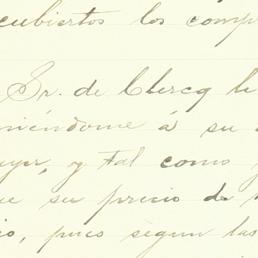 cubiertos los comp
Sr. de Clercq le
niéndome á su
y tal como
ue su precio de
io, pues según las